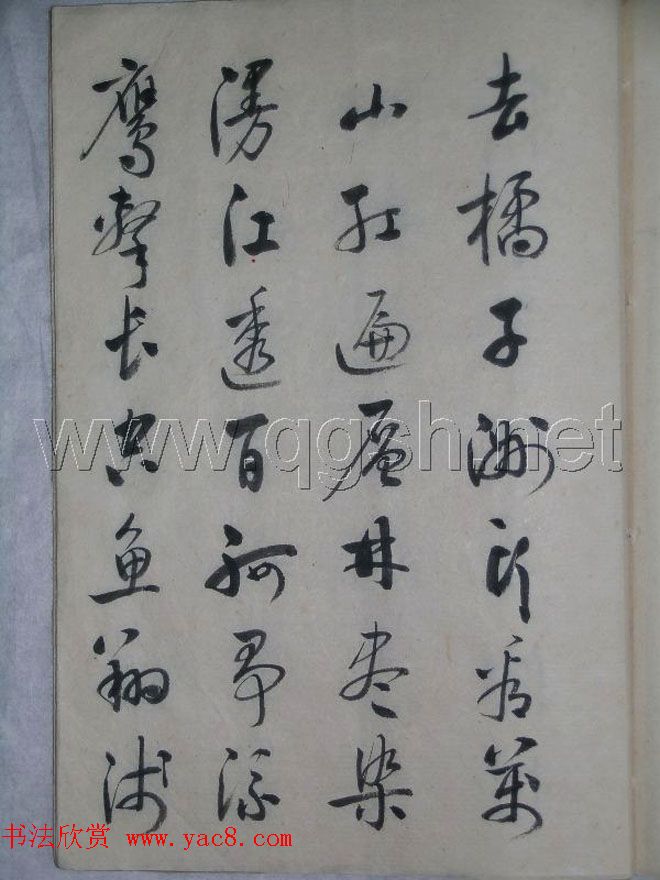 去橘子洲头看萬
山红遍層林尽染
漫江透百舸争流
鹰擊长空鱼翔浅
www.qgsh.net
书法欣赏 www.yac8.com